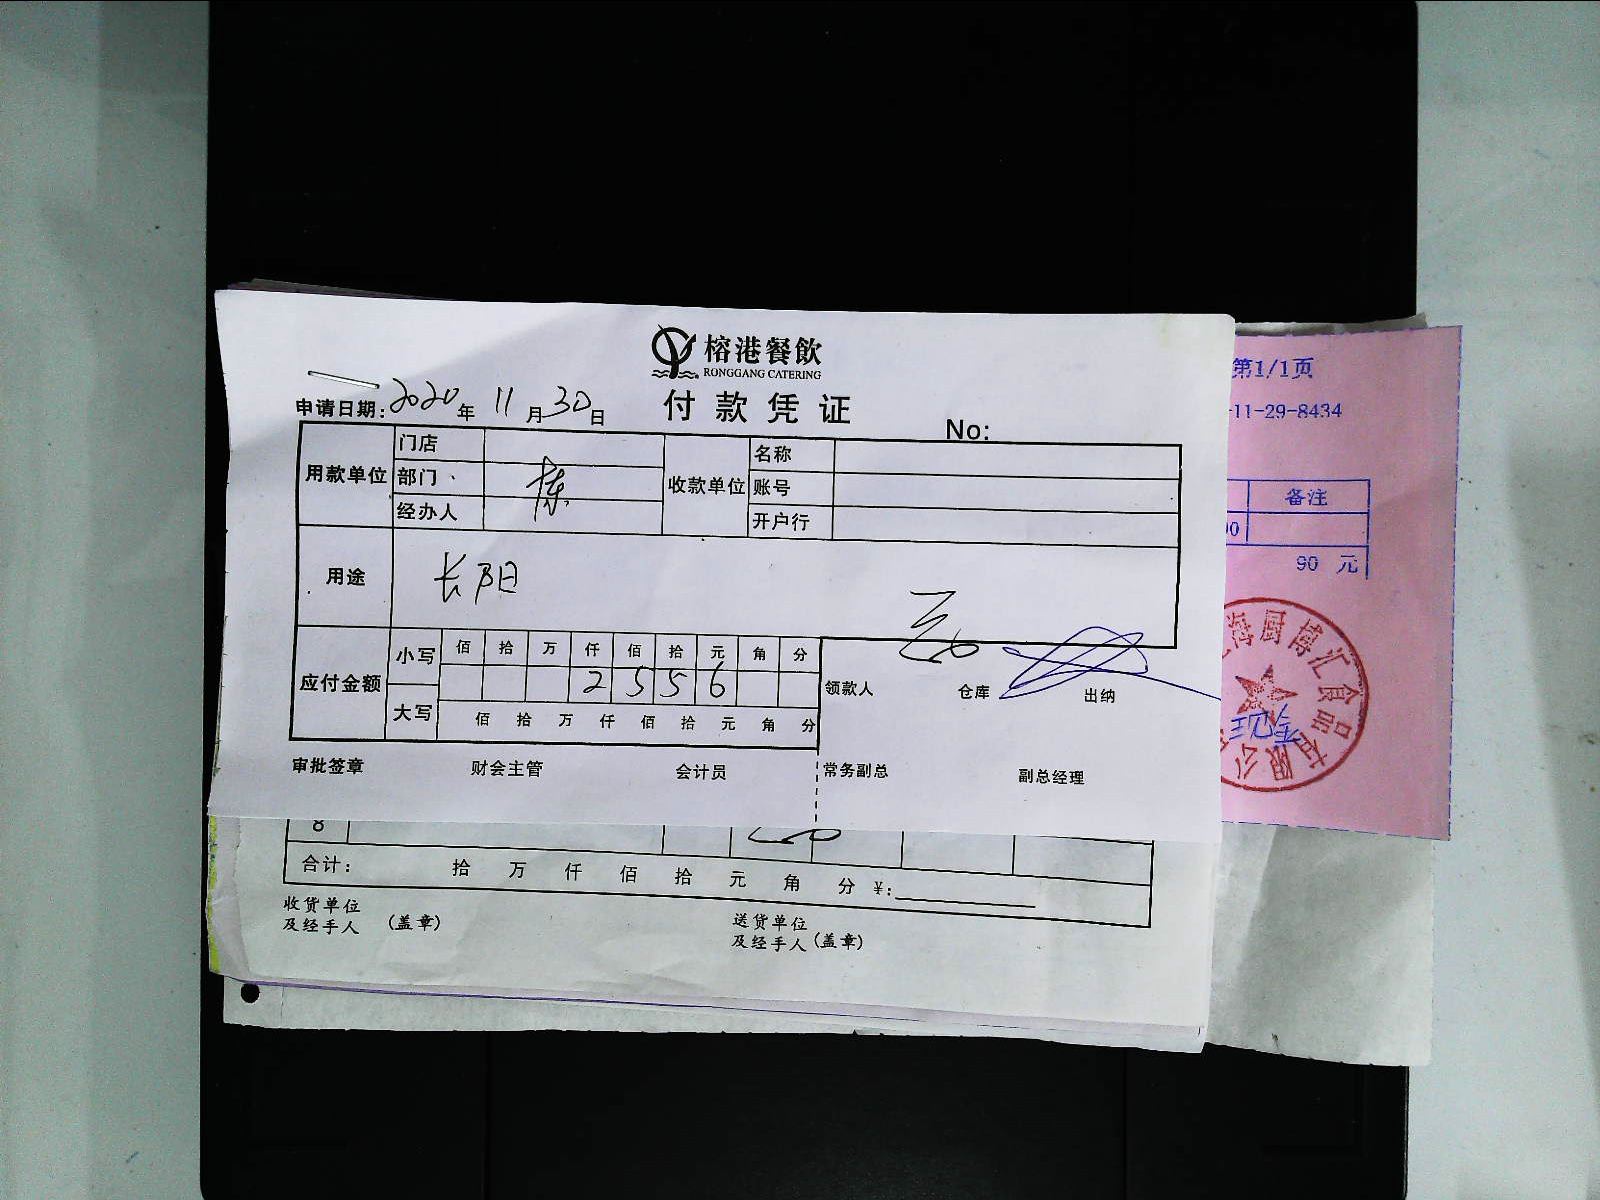 榕港餐飲
RONGGANG CATERING
付款凭证
申请日期：2020年11月30日
No:
用款单位 门店 收款单位 名称
部门 账号
经办人 开户行
用途 长阳
应付金额 小写 佰 拾 万 仟 佰 拾 元 角 分
2 5 5 6
大写 佰 拾 万 仟 佰 拾 元 角 分
领款人 仓库 出纳
审批签章 财会主管 会计员 常务副总 副总经理
8
合计： 拾 万 仟 佰 拾 元 角 分 ¥:
收货单位
及经手人 (盖章)
送货单位
及经手人 (盖章)
第1/1页
-11-29-8434
备注
90 元
海厨博汇食品有限公